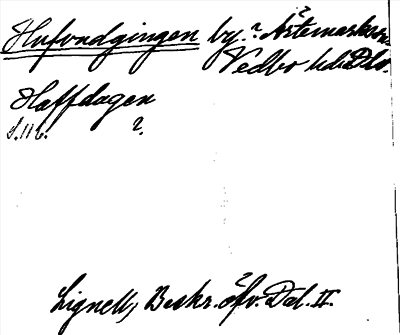 Hufvudgingen by? Ärtemarks sn
Vedbo hd Dls.
Haffdagen
S. 116. ?
Lignell, Beskr. öfv. Dal. II.